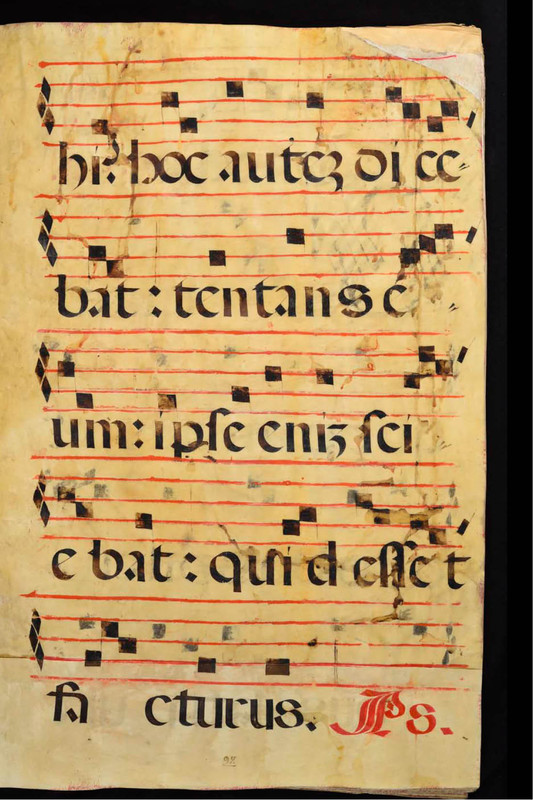 hi? hoc autēʒ di ce-
bat: tentans e-
um: ipſe eniʒ ſci
e bat: quid eſſet
fa cturus. Ps.